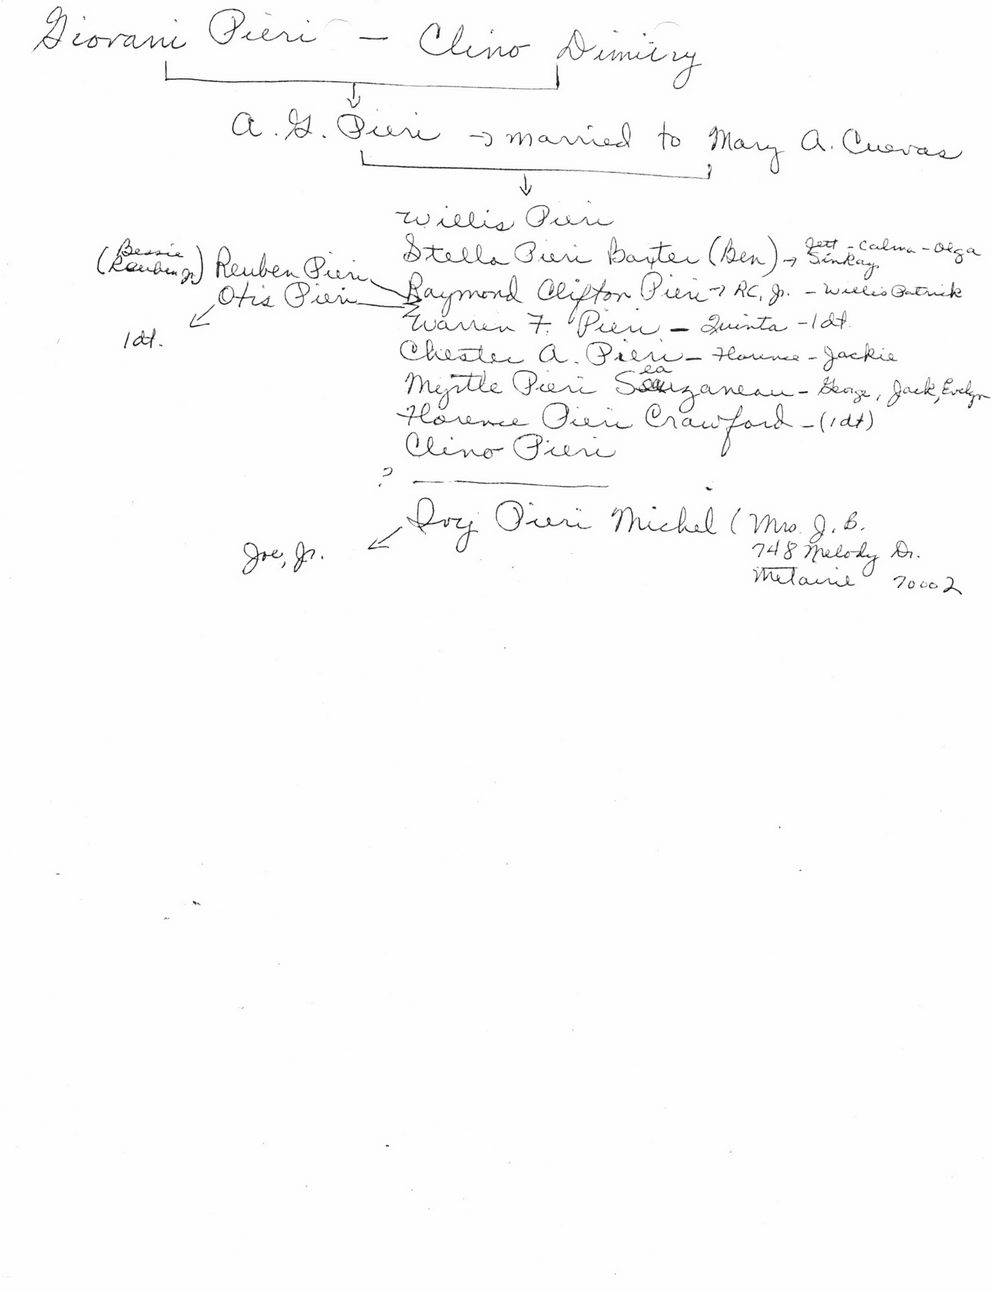 Giovani Pieri - Clino Dimitry
A. G. Pieri → married to Mary A. Cuevas
Willis Pieri
Stella Pieri Baxter (Ben) → Jett - Calma - Olga
Sinkay
(Bessie
Reuben Jr) Reuben Pieri
Otis Pieri
1 dt.
Raymond Clifton Pieri → RC, Jr. - Willis Patrick
Warren F. Pieri - Quinta - 1 dt.
Chester A. Pieri - Florence - Jackie
Myrtle Pieri - George, Jack, Evelyn
Florence Pieri Crawford - (1 dt)
Clino Pieri
?
Ivy Pieri Michel (Mrs. J. B.
748 Melody Dr.
Metairie 70002
Joe, Jr.